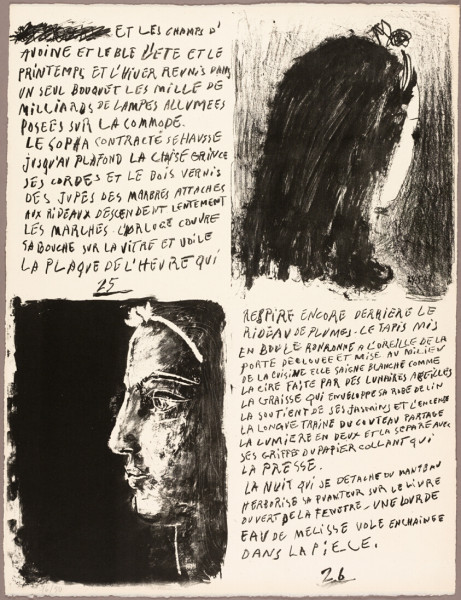 ET LES CHAMPS D'
AVOINE ET LE BLE L'ETE ET LE
PRINTEMPS ET L'HIVER REUNIS DANS
UN SEUL BOUQUET LES MILLE DE
MILLIARDS DE LAMPES ALLUMEES
POSEES SUR LA COMMODE.
LE SOPHA CONTRACTÉ SE HAUSSE
JUSQU'AU PLAFOND LA CHAISE GRINCE
SES CORDES ET LE BOIS VERNIS
DES JUPES DES MARBRES ATTACHES
AUX RIDEAUX DESCENDENT LENTEMENT
LES MARCHES. L'ORLOGE COUVRE
SA BOUCHE SUR LA VITRE ET VOILE
LA PLAQUE DE L'HEURE QUI
25
RESPIRE ENCORE DERRIERE LE
RIDEAU DE PLUMES. LE TAPIS MIS
EN BOULE RONRONNE A L'OREILLE DE LA
PORTE DECLOUEE ET MISE AU MILIEU
DE LA CUISINE ELLE SAIGNE BLANCHE COMME
LA CIRE FAITE PAR DES LUNAIRES ABEILLES
LA GRAISSE QUI ENVELOPPE SA ROBE DE LIN
LA SOUTIENT DE SES JASMINS ET L'ENCENSE
LA LONGUE TRAINE DU COUTEAU PARTAGE
LA LUMIERE EN DEUX ET LA SEPARE AVEC
SES GRIFFES DU PAPIER COLLANT QUI
LA PRESSE.
LA NUIT QUI SE DETACHE DU MANTEAU
HERBORISE SA PUANTEUR SUR LE LIVRE
OUVERT DE LA FENETRE. UNE LOURDE
EAU DE MELISSE VOLE ENCHAINEE
DANS LA PIECE.
26